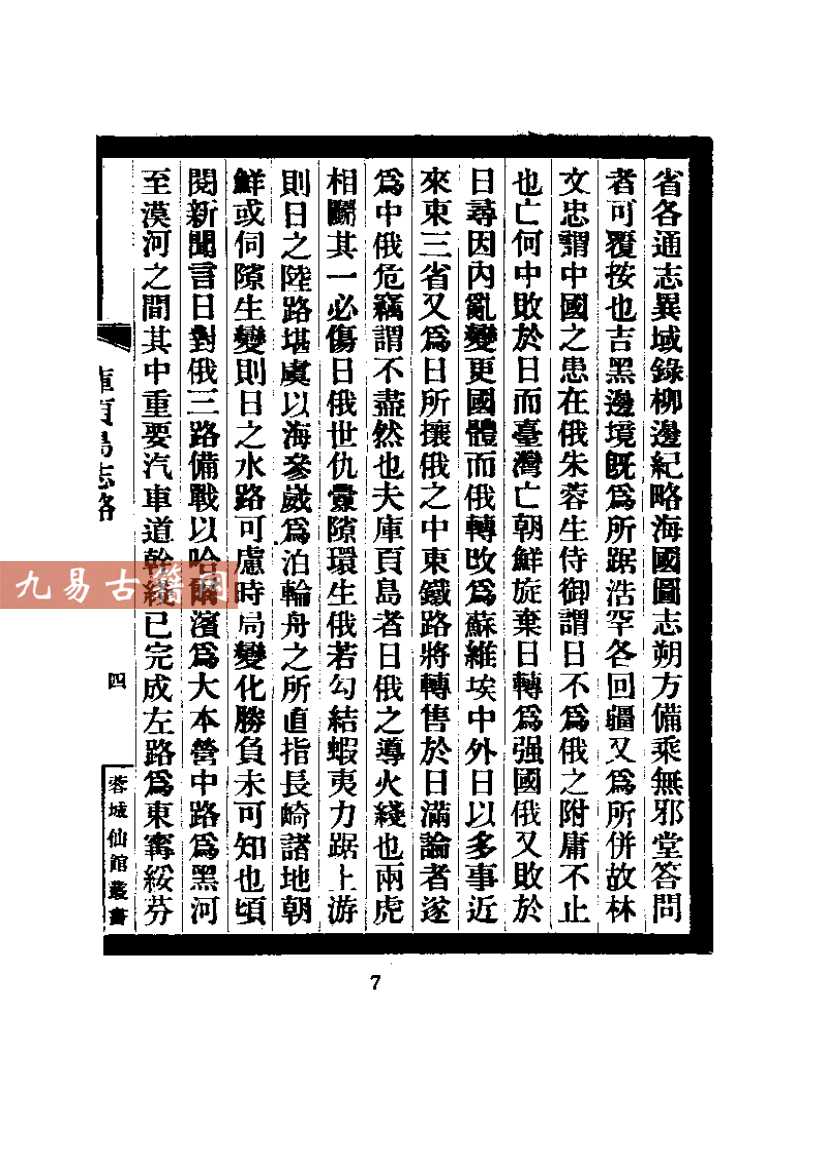 省各通志異域錄柳邊紀略海國圖志朔方備乘無邪堂答問
者可覆按也吉黑邊境既爲所踞浩罕各回疆又爲所併故林
文忠謂中國之患在俄朱蓉生侍御謂日不爲俄之附庸不止
也亡何中敗於日而臺灣亡朝鮮旋棄日轉爲强國俄又敗於
日尋因內亂變更國體而俄轉改爲蘇維埃中外日以多事近
來東三省又爲日所攘俄之中東鐵路將轉售於日滿論者遂
爲中俄危竊謂不盡然也夫庫頁島者日俄之導火綫也兩虎
相鬭其一必傷日俄世仇釁隙環生俄若勾結蝦夷力踞上游
則日之陸路堪虞以海參崴爲泊輪舟之所直指長崎諸地朝
鮮或伺隙生變則日之水路可慮時局變化勝負未可知也頃
閱新聞言日對俄三路備戰以哈爾濱爲大本營中路爲黑河
至漠河之間其中重要汽車道幹綫已完成左路爲東寗綏芬
庫頁島志略
四
蓉城仙館叢書
九易古籍网
7